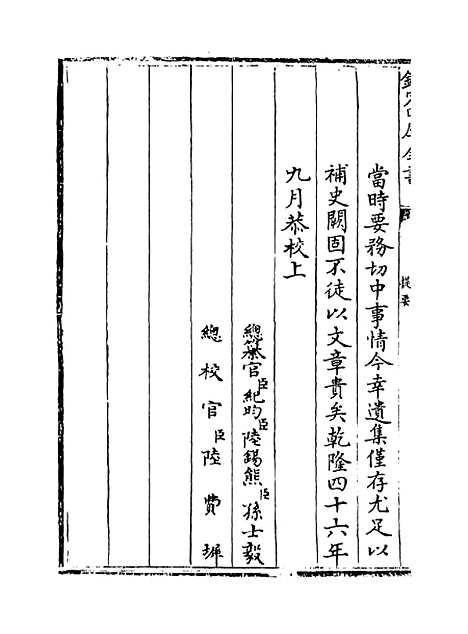 欽定四庫全書
提要
當時要務切中事情今幸遺集僅存尤足以
補史闕固不徒以文章貴矣乾隆四十六年
九月恭校上
總纂官臣紀昀臣陸錫熊臣孫士毅
總校官臣陸費墀